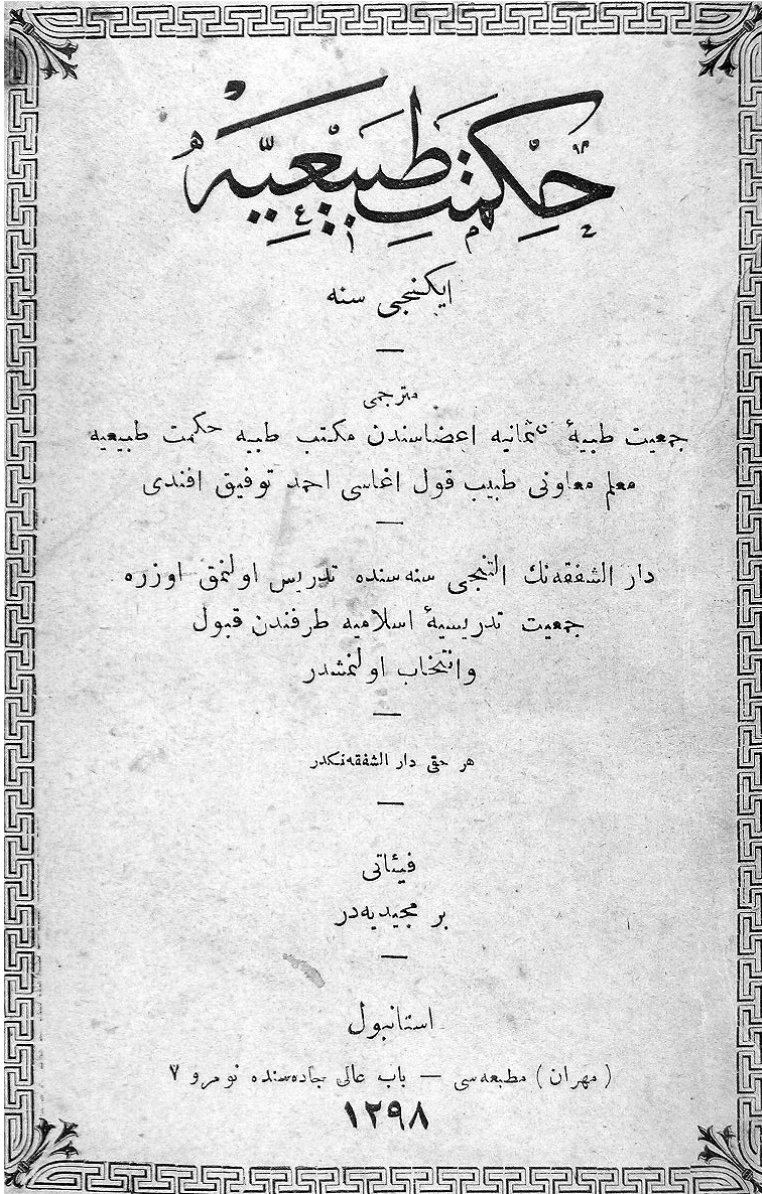 حكمت طبيعيه
ايكنجى سنه
مترجمى
جمعيت طبيۀ عثمانيه اعضاسندن مكتب طبيه حكمت طبيعيه
معلم معاونى طبيب قول اغاسى احمد توفيق افندى
دار الشفقه‌نك التنجى سنه‌سنده تدريس اولنمق اوزره
جمعيت تدريسيۀ اسلاميه طرفندن قبول
وانتخاب اولنمشدر
هر حقى دار الشفقه‌نكدر
فيئاتى
بر مجيديه‌در
استانبول
(مهران) مطبعه‌سى — باب عالى جاده‌سنده نومرو ٧
١٢٩٨